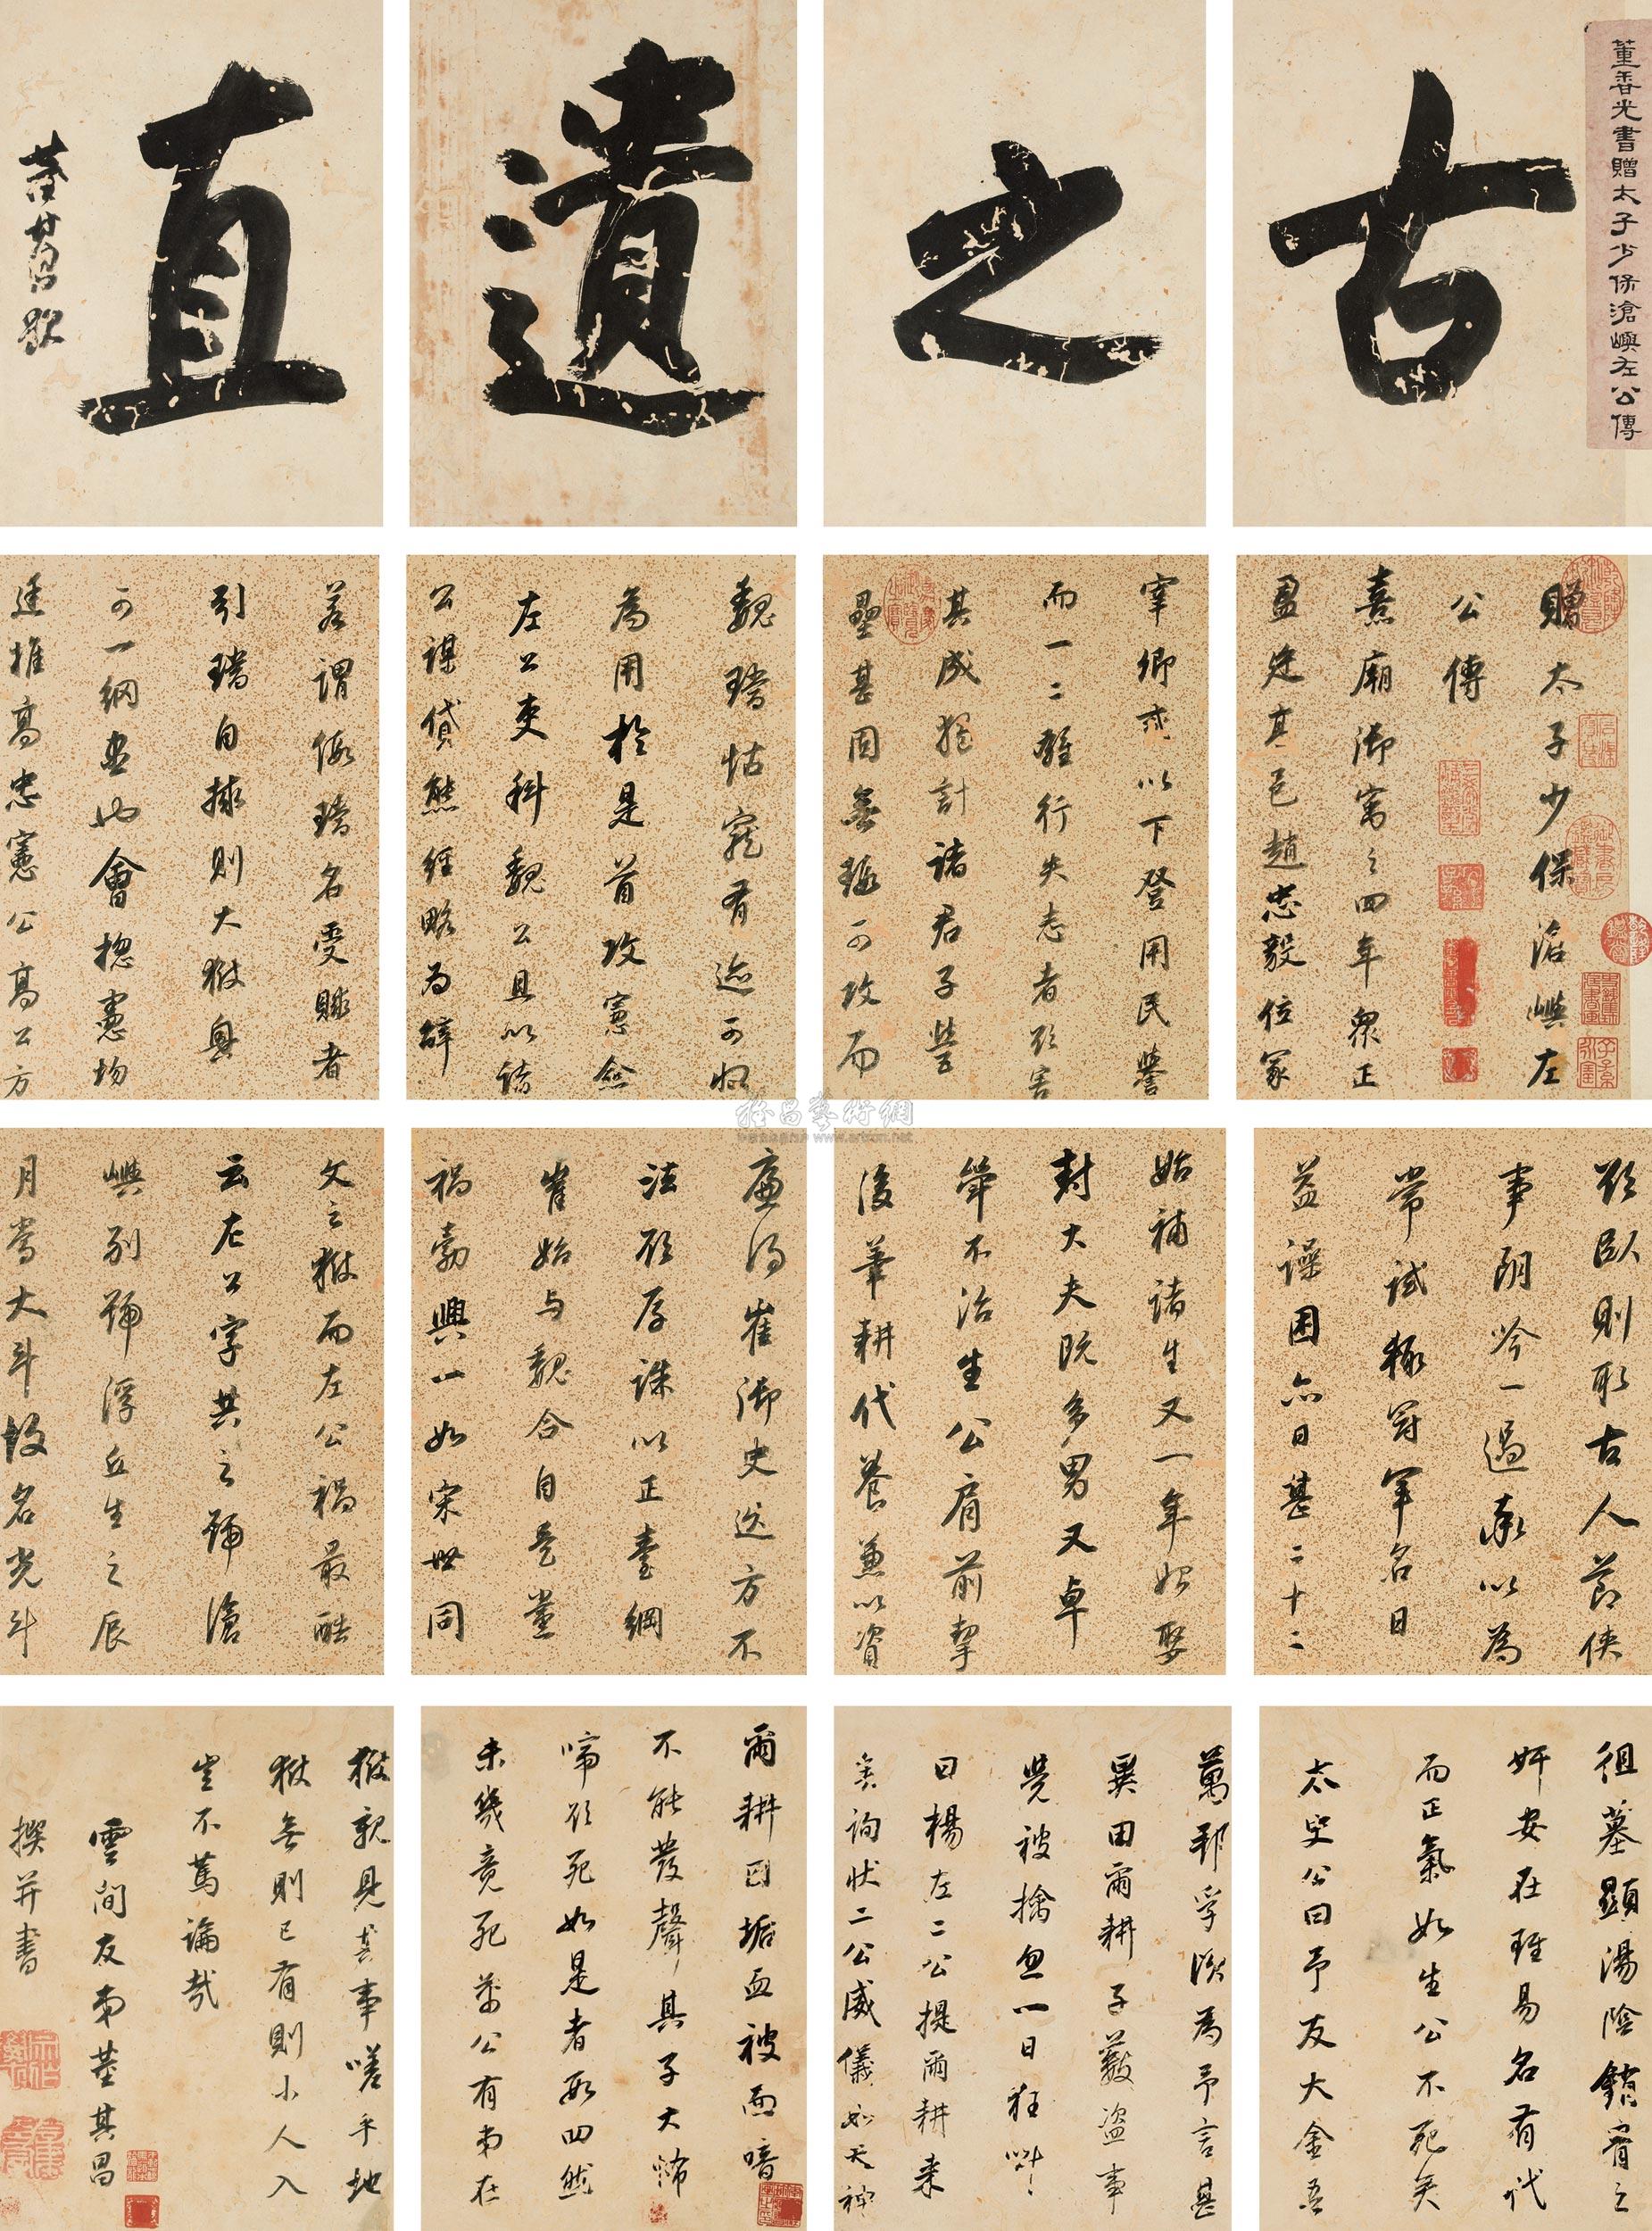 董香光書贈太子少保滄嶼左公傳
古
之
遺
直
董其昌題
贈太子少保滄嶼左
公傳
熹廟御寓之四年眾正
盈廷高邑趙忠毅位冢
宰卿貳以下登用民譽
而一二雖行失志者欲害
其成獨計諸君子營
壘甚固無瑕可攻而
魏璫怙寵有迹可狀
為用於是首攻憲僉
左公吏科魏公且以諸
公謀貸熊經略為辭
若謂假璫名受賕者
引璫自據則大獄興
可一網盡也會總憲均
廷推高忠憲公高公方
廉得崔御史巡方不
法欲厚誅以正臺綱
崔始與魏合自是黨
禍勃興一如宋世同
文之獄而左公禍最酷
云左公字共之號滄
嶼別號浮丘生之辰
月當大斗故名光斗
欲臥則取古人節俠
事朗吟一過率以為
常試極冠軍名日
益譟困亦日甚二十二
始補諸生又一年始娶
封大夫既多男又卓
犖不治生公肩前挈
後筆耕代養兼以資
徂墓顯湯陰鐫宵之
奸安在瑾易名有代
而正氣如生公不死矣
太史公曰予友大金吾
萬邦孚談為予言甚
異田爾耕子藪盜事
覺被擒忽一日狂叫
曰楊左二公提爾耕來
矣詢狀二公威儀如天神
爾耕囚垢血被面喑
不能發聲其子大怖
啼欲死如是者數四然
未幾竟死萬公有弟在
獄親見其事嗟乎地
獄無則已有則小人入
豈不篤論哉
雲間友弟董其昌
撰并書
雅昌藝術網
www.artron.net